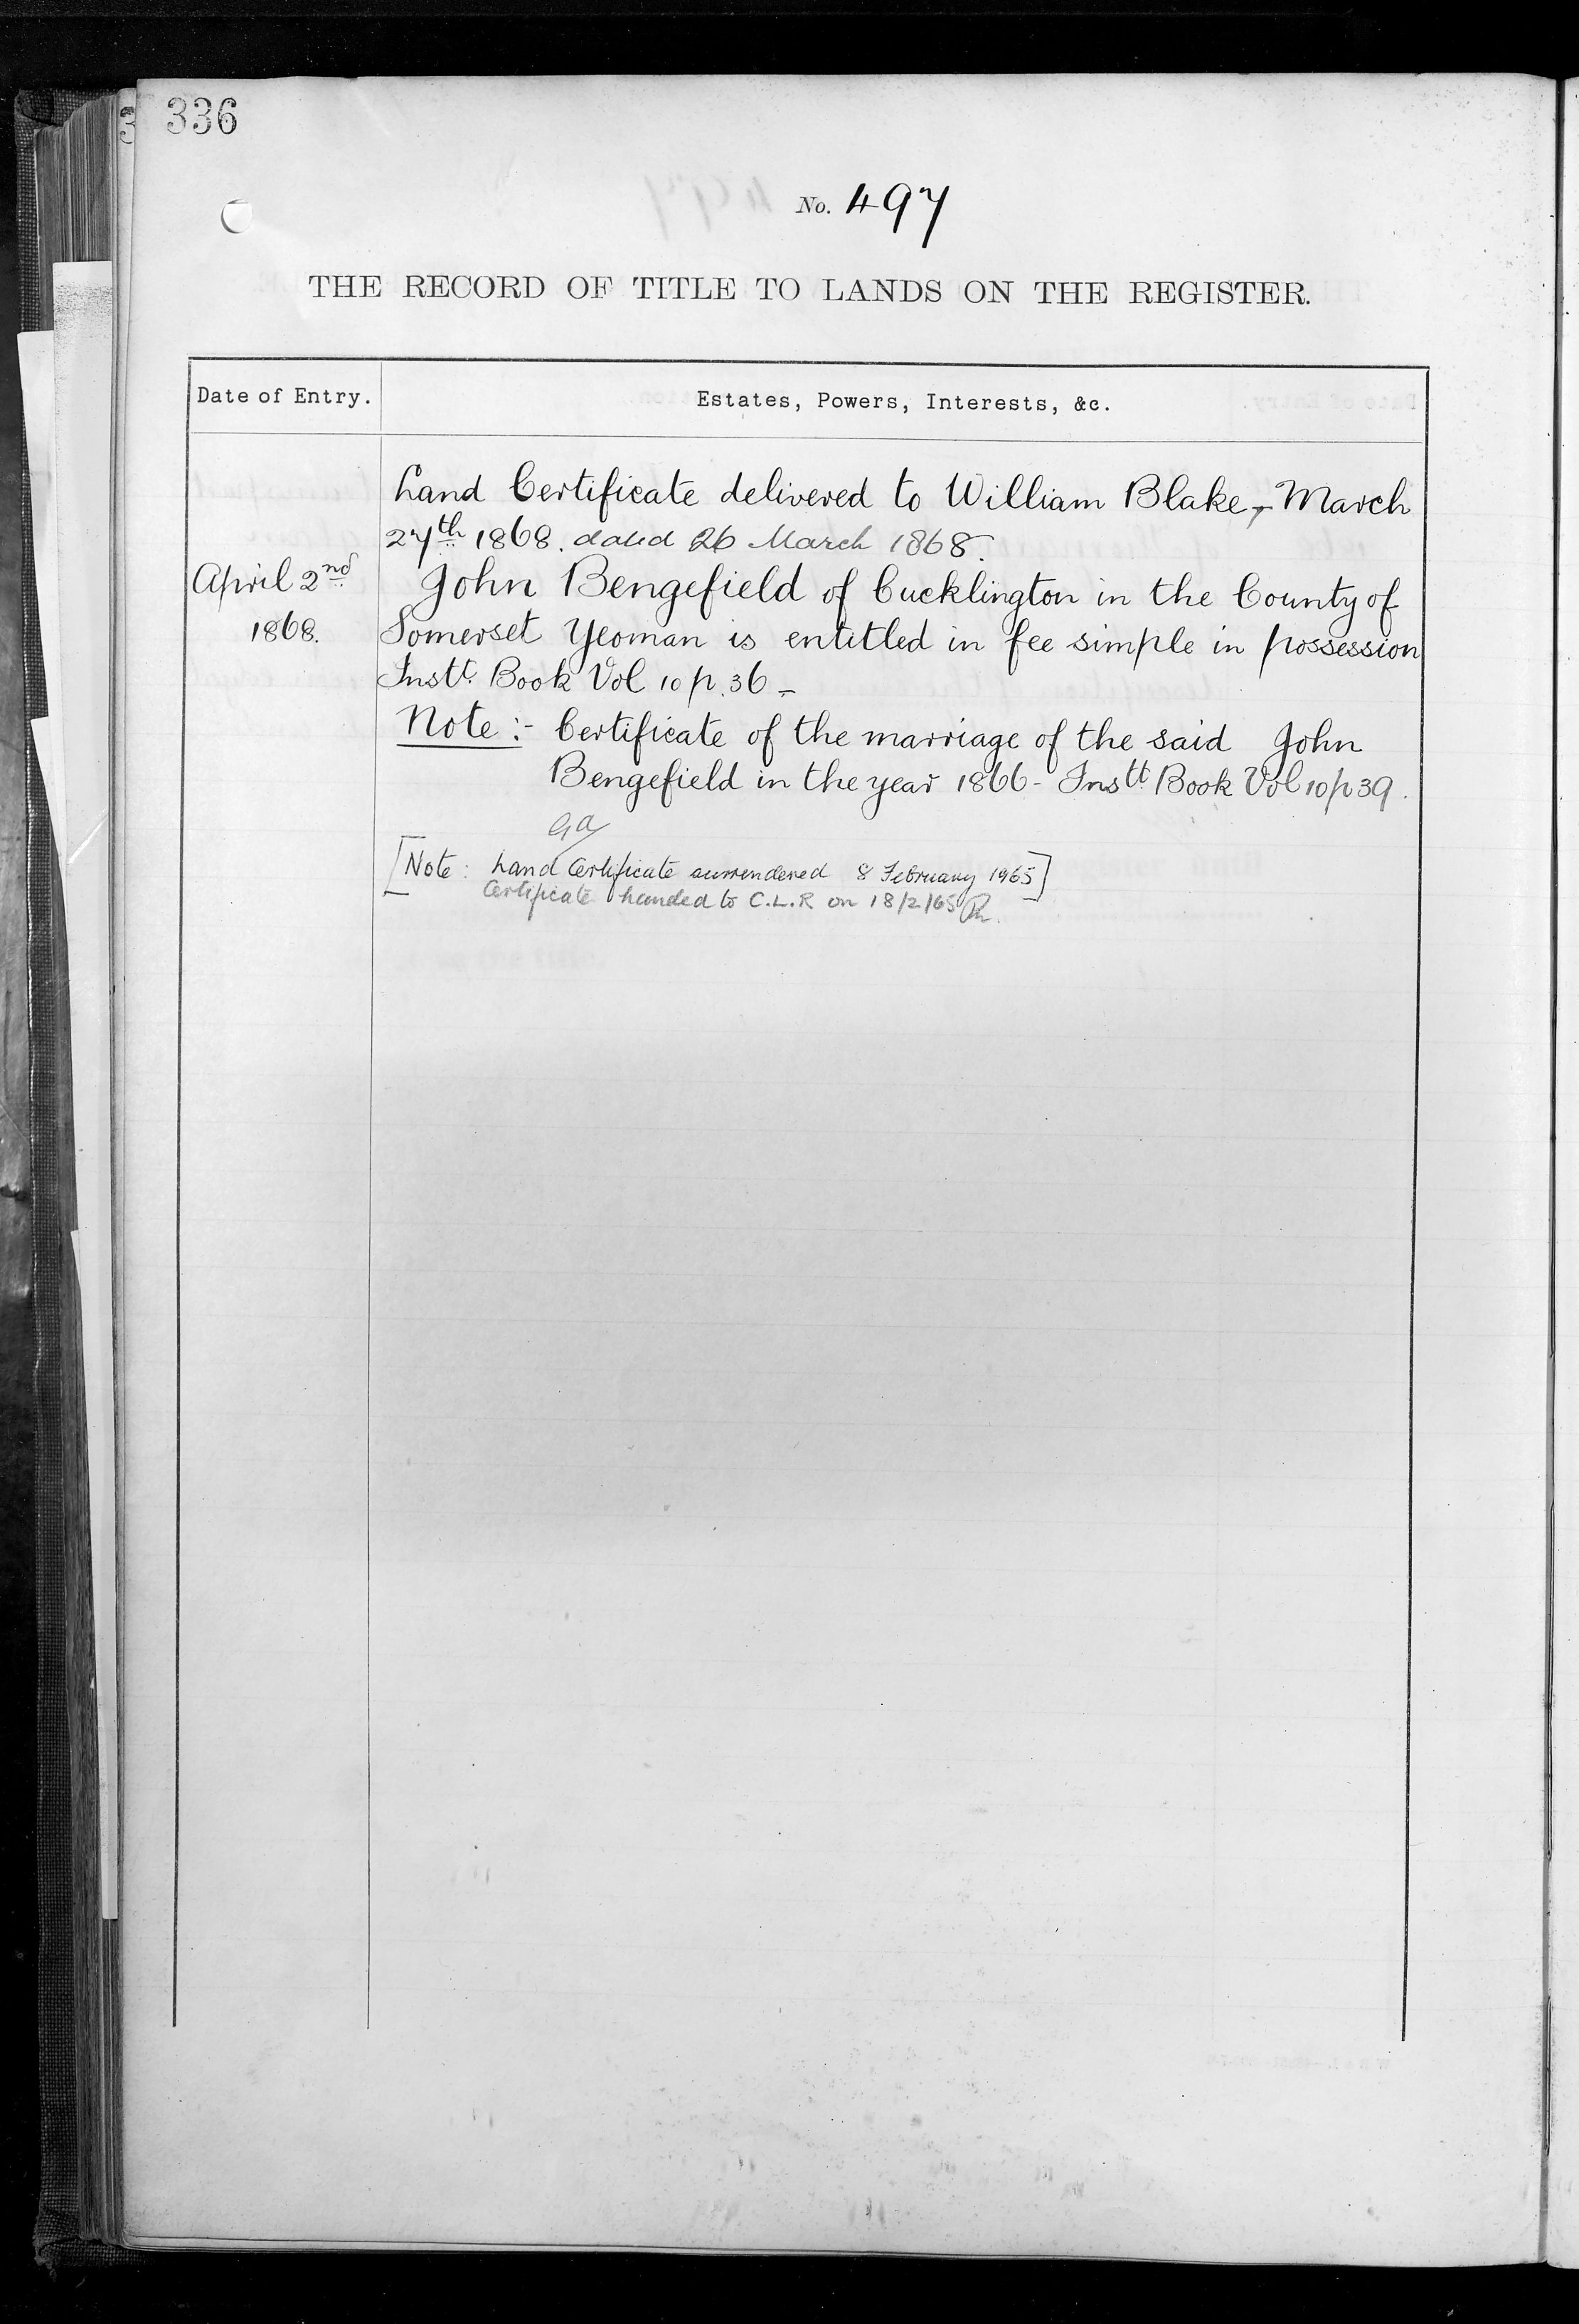 336
No. 497
THE RECORD OF TITLE TO LANDS ON THE REGISTER.
Date of Entry.
Estates, Powers, Interests, &c.
Land Certificate delivered to William Blake, - March
27th 1868. dated 26 March 1868.
April 2nd
1868.
John Bengefield of Cucklington in the County of
Somerset Yeoman is entitled in fee simple in possession
Instt. Book Vol 10 p. 36 -
Note :- Certificate of the marriage of the said John
Bengefield in the year 1866 - Instt. Book Vol 10 p 39.
[Note: Land Certificate surrendered 8 February 1965]
Certificate handed to C.L.R on 18/2/65